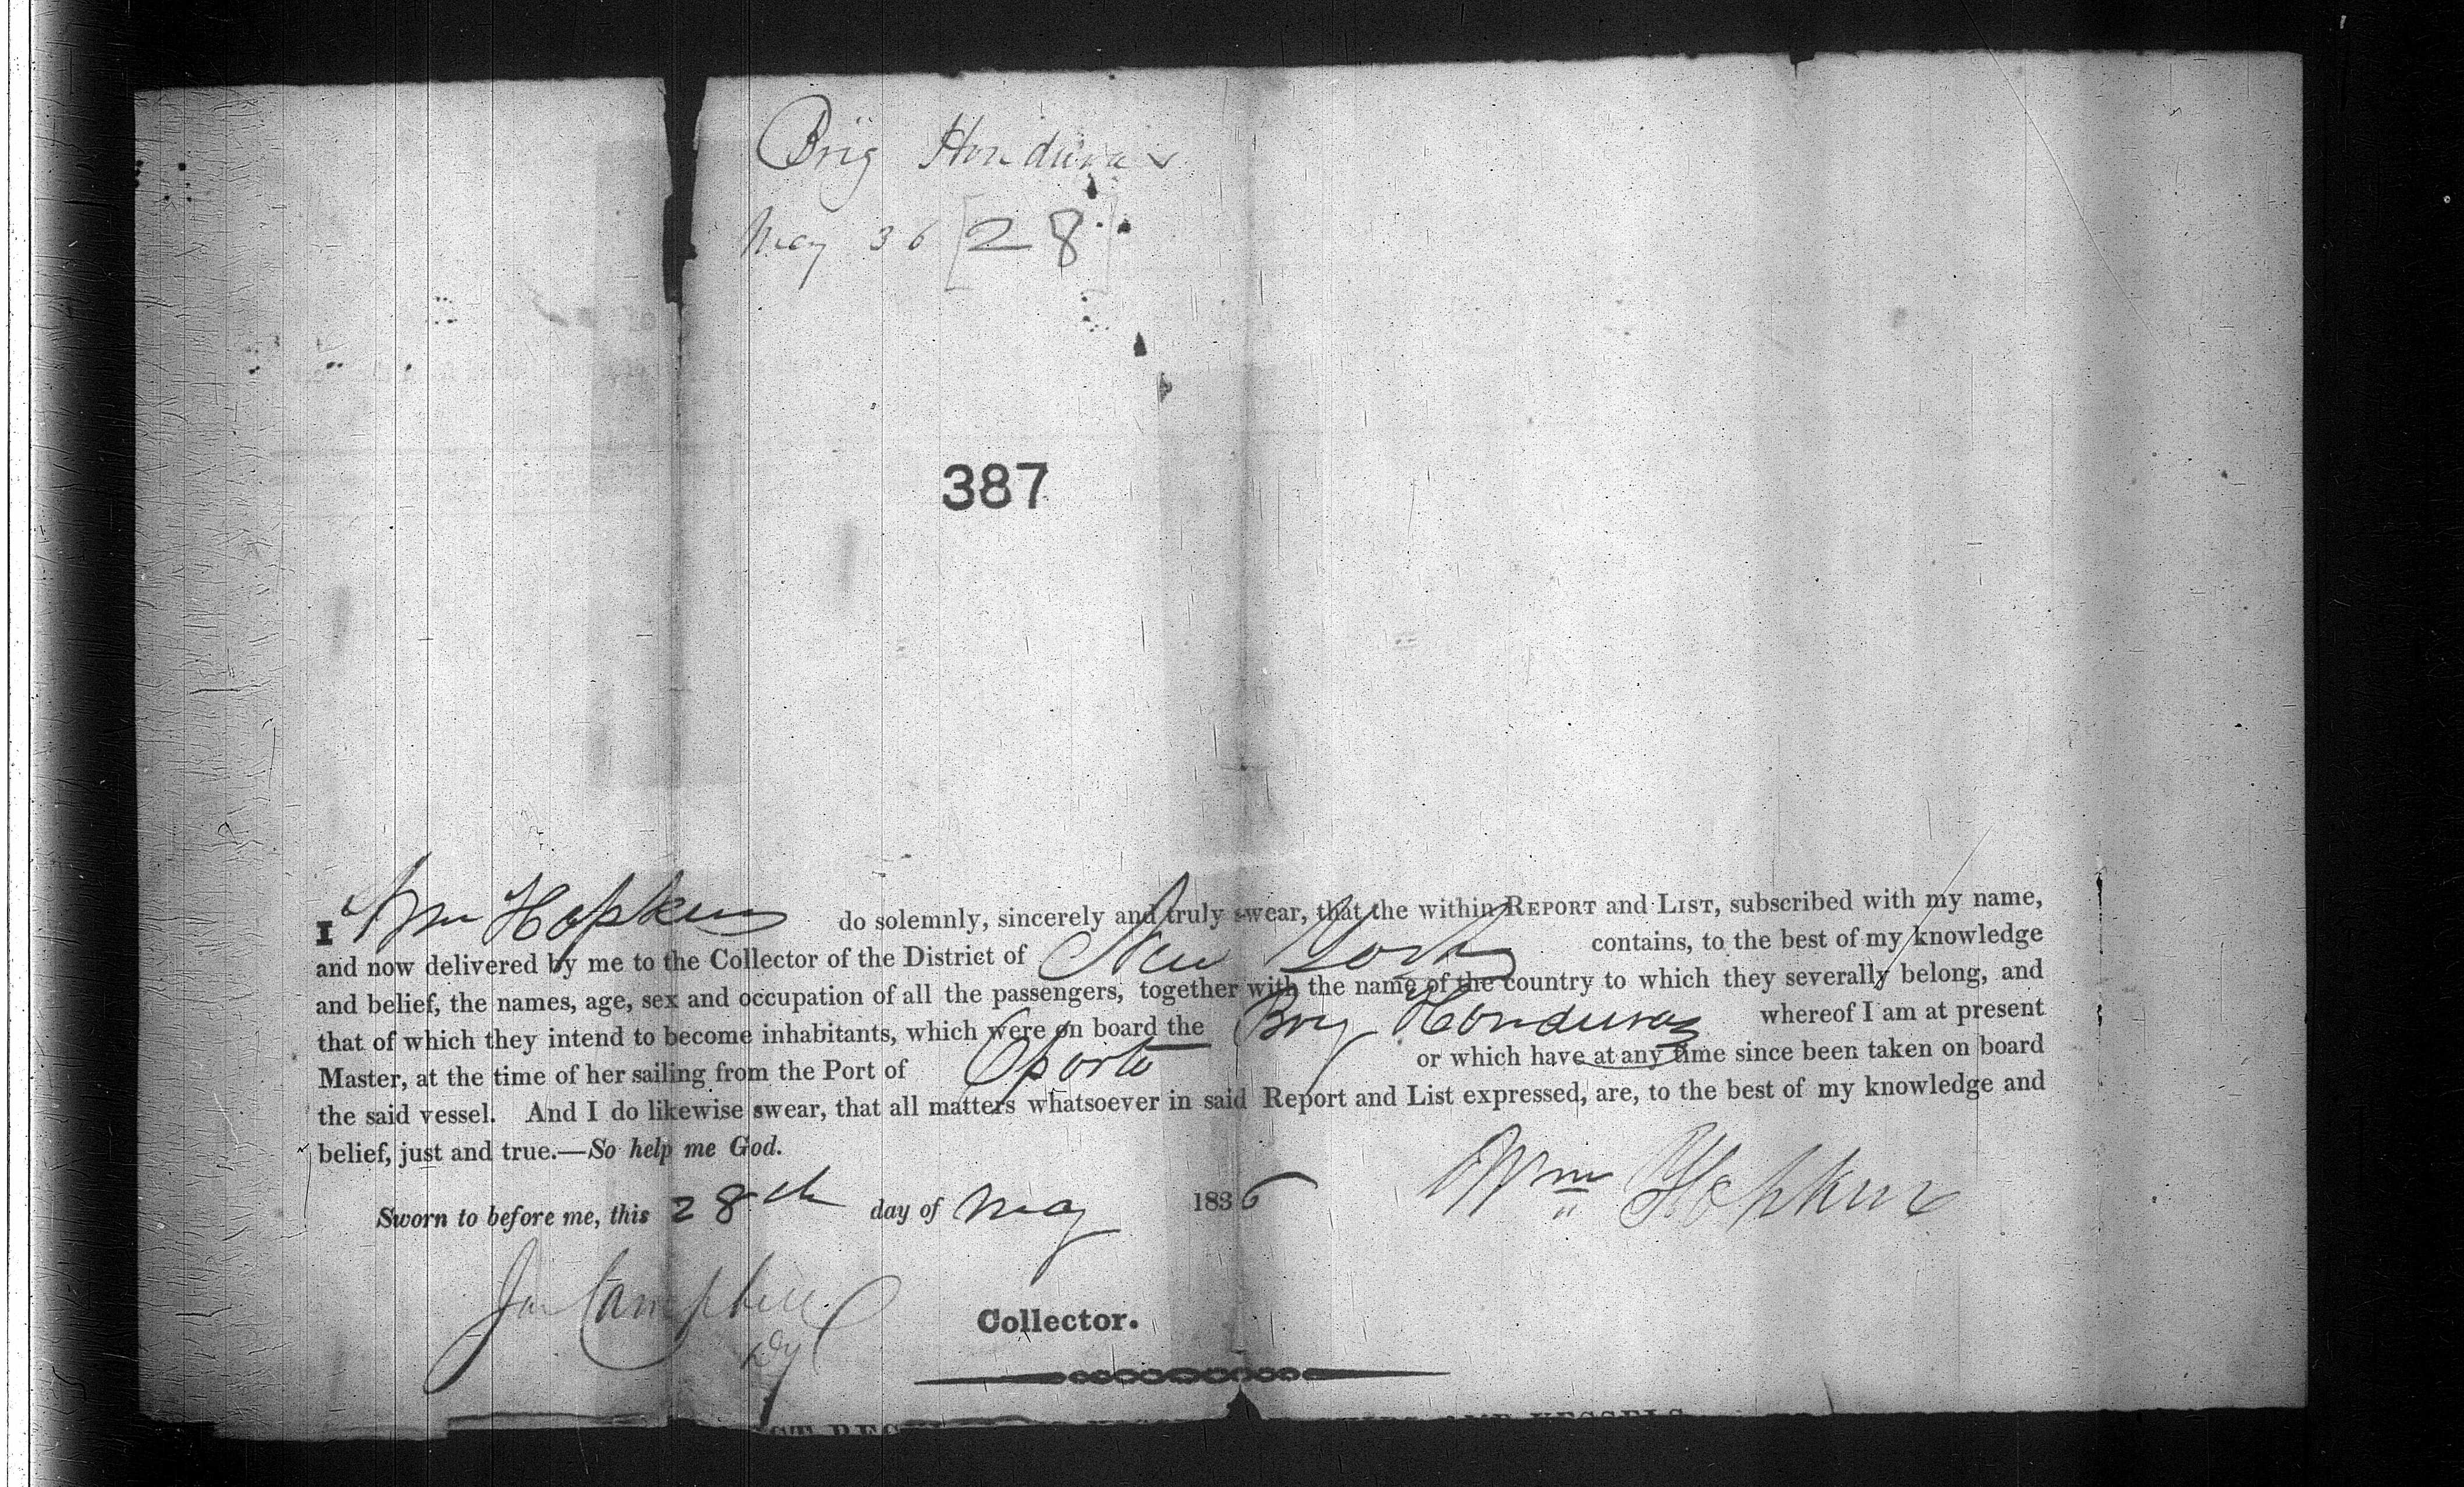 Brig Honduras
May 36 [28]
387
I Wm Hopkins do solemnly, sincerely and truly swear, that the within REPORT and LIST, subscribed with my name,
and now delivered by me to the Collector of the District of New York contains, to the best of my knowledge
and belief, the names, age, sex and occupation of all the passengers, together with the name of the country to which they severally belong, and
that of which they intend to become inhabitants, which were on board the Brig Honduras whereof I am at present
Master, at the time of her sailing from the Port of Oporto or which have at any time since been taken on board
the said vessel. And I do likewise swear, that all matters whatsoever in said Report and List expressed, are, to the best of my knowledge and
belief, just and true.—So help me God.
Sworn to before me, this 28th day of May 1836 Wm Hopkins
Campbell
Dy Collector.
VESSELS